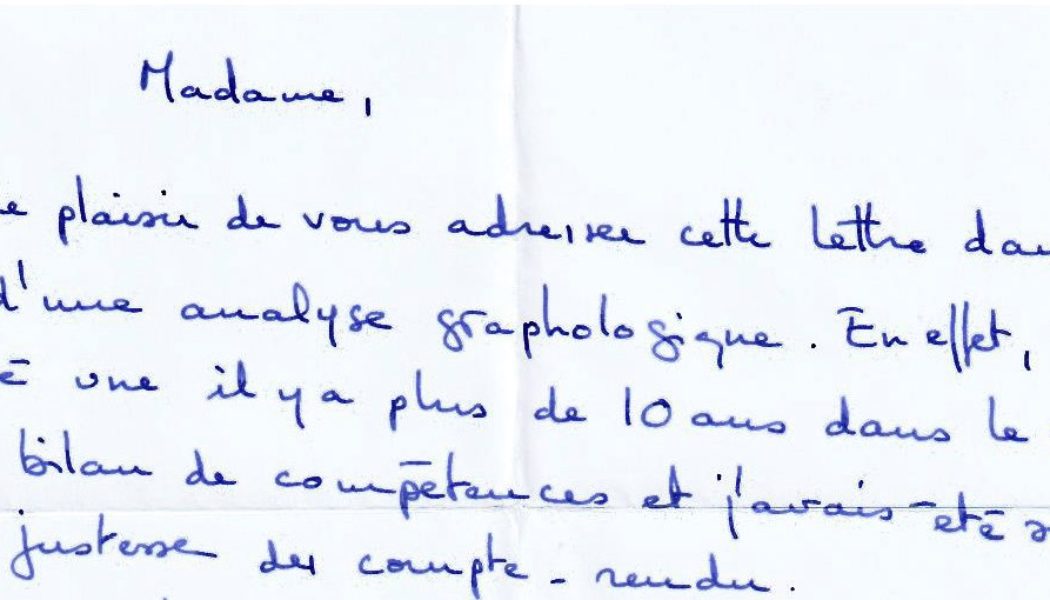 Madame,
e plaisir de vous adresser cette lettre dan
d'une analyse graphologique. En effet,
é une il y a plus de 10 ans dans le
bilan de compétences et j'avais été s
justesse du compte-rendu.